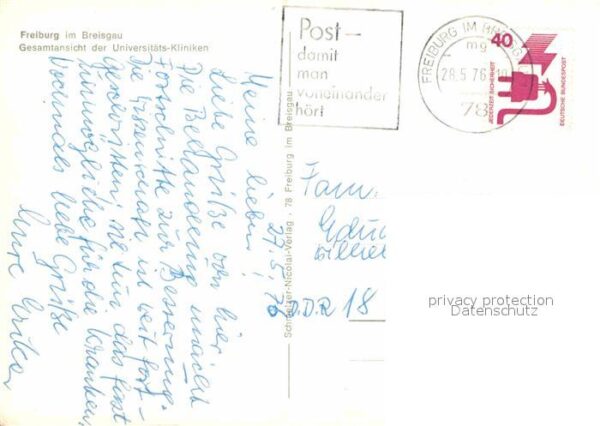 Freiburg im Breisgau
Gesamtansicht der Universitäts-Kliniken
Post–
damit
man
voneinander
hört
FREIBURG IM BREISGAU
mg
28.5.76
78
40
JEDERZEIT SICHERHEIT
DEUTSCHE BUNDESPOST
Meine Lieben!
27.5.76
Liebe Grüße von hier
Die Behandlung macht
Fortschritte zur Besserung.
Die Wissenschaft ist weit fort-
geschritten; sie tun das fast
Unmögliche für die Kranken.
Nochmals liebe Grüße
Eure Erika
Schöning-Nicolai-Verlag · 78 Freiburg im Breisgau
Fam.
DDR 18
privacy protection
Datenschutz